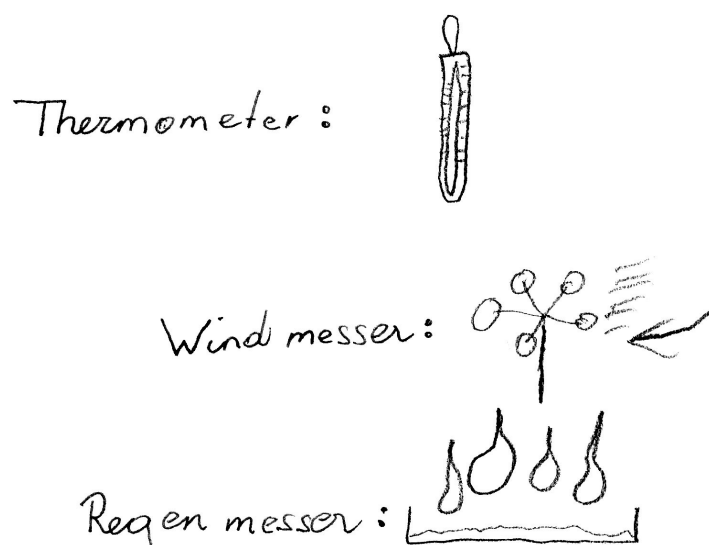 Thermometer :
Wind messer :
Regen messer :